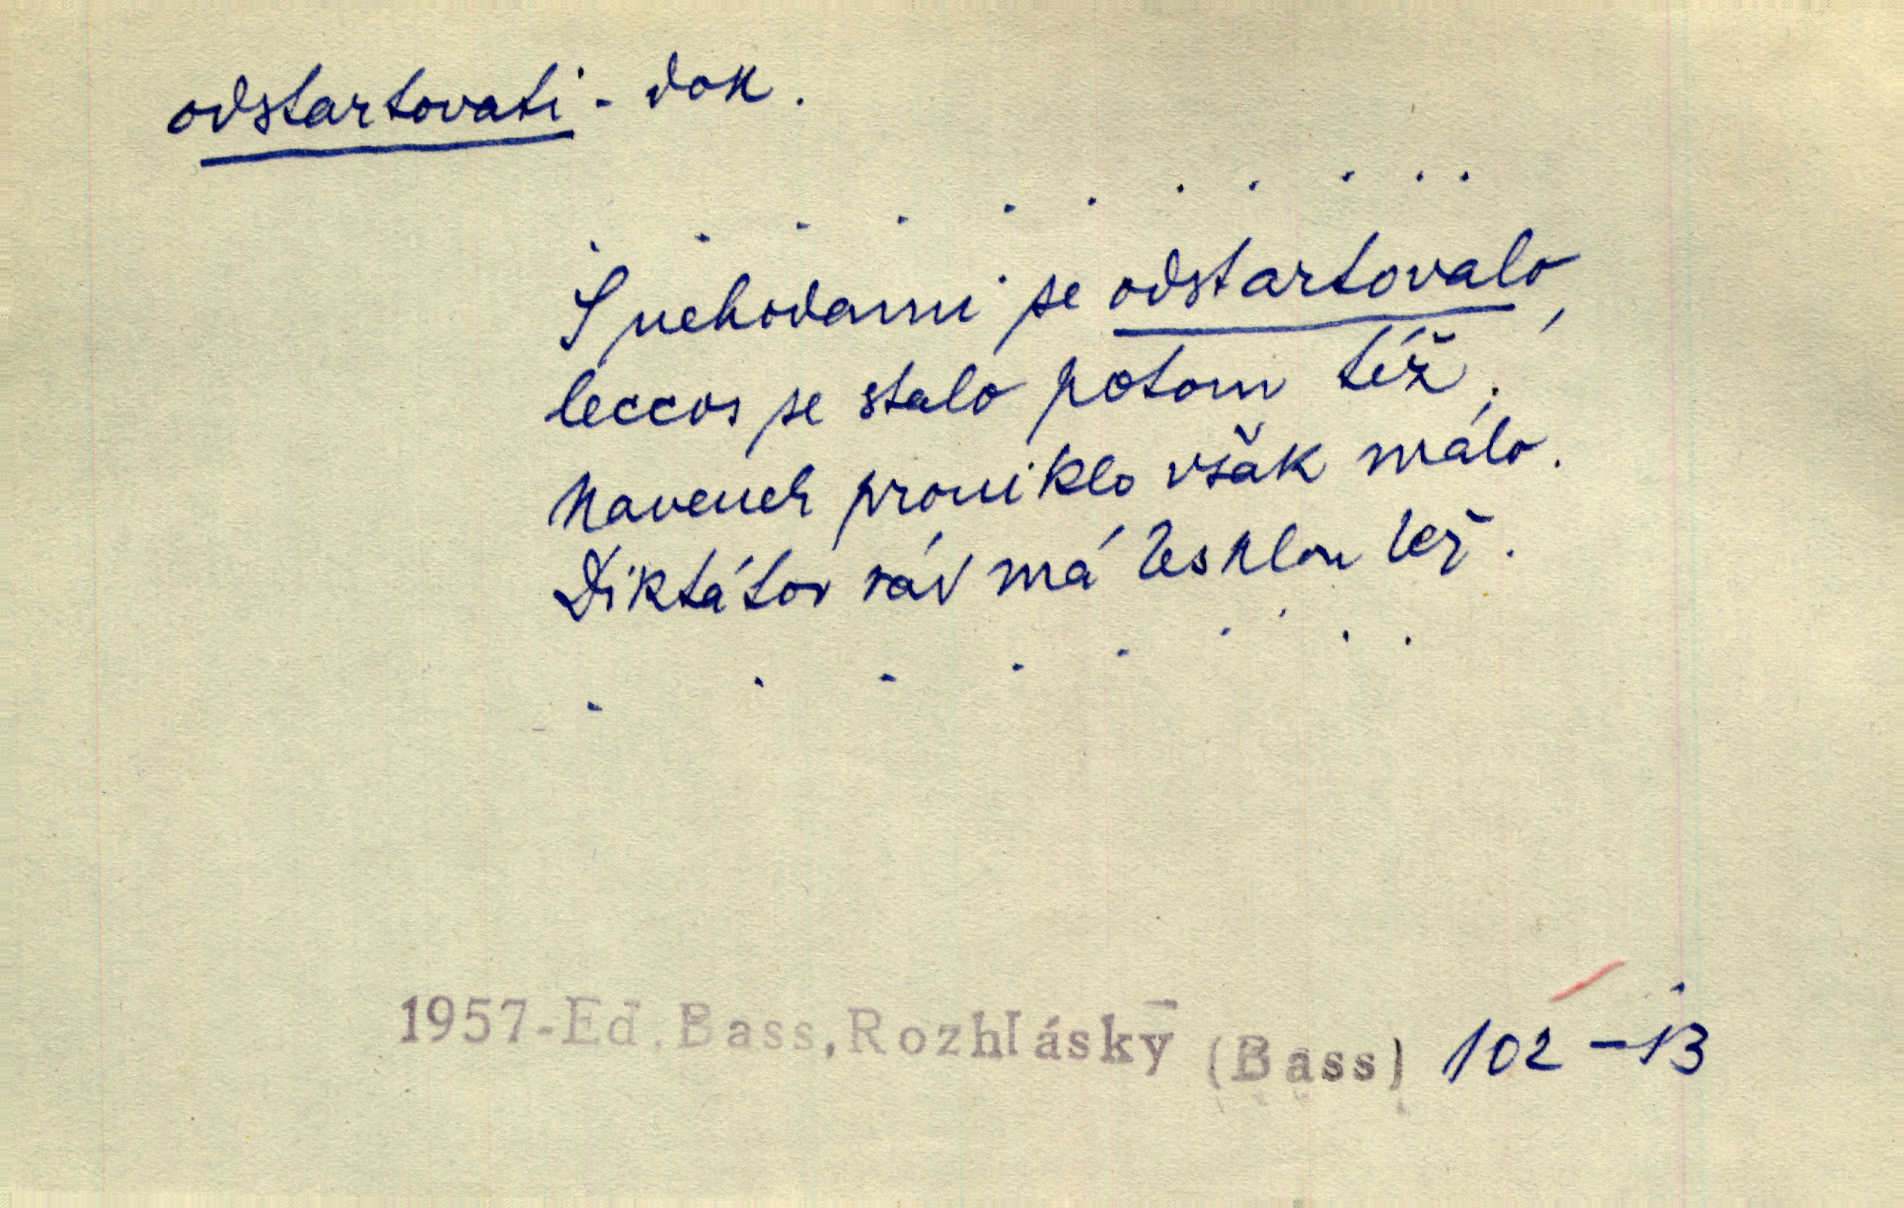 odstartovati - dok.
. . . . . . . . . . .
S nehodami se odstartovalo,
leccos se stalo potom též;
navenek proniklo však málo.
Diktátor rád má lesklou lež.
. . . . . . . . .
1957-Ed.Bass,Rozhlásky (Bass) 102 - 13